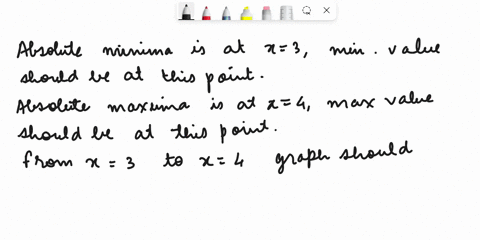 Absolute minima is at x=3, min. value
should be at this point.
Absolute maxima is at x=4, max value
should be at this point.
from x = 3 to x = 4 graph should